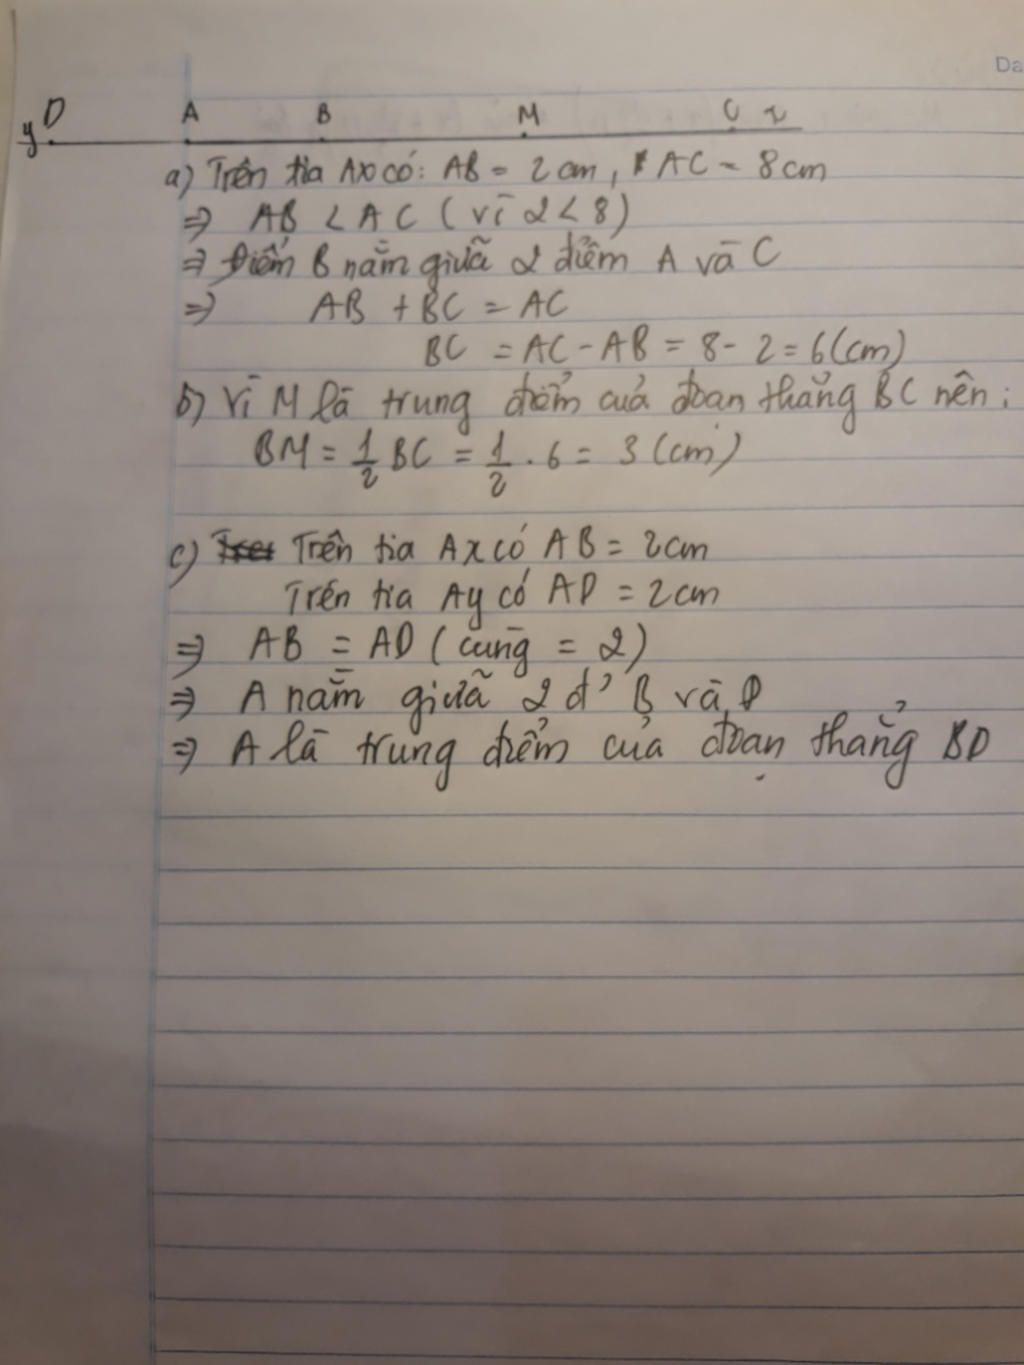 Da
y D A B M C x
a) Trên tia Ax có: AB = 2 cm, AC = 8cm
⇒ AB < AC ( vì 2 < 8 )
⇒ Điểm B nằm giữa 2 điểm A và C
⇒ AB + BC = AC
BC = AC - AB = 8 - 2 = 6 (cm)
b) Vì M là trung điểm của đoạn thẳng BC nên :
BM = 1/2 BC = 1/2 . 6 = 3 (cm)
c) Trên tia Ax có AB = 2cm
Trên tia Ay có AD = 2cm
⇒ AB = AD ( cùng = 2 )
⇒ A nằm giữa 2 đ' B và D
⇒ A là trung điểm của đoạn thẳng BD